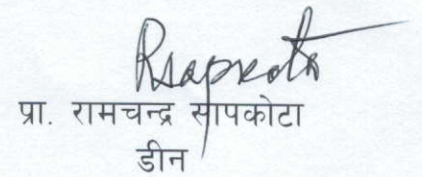 Rsapkota
प्रा. रामचन्द्र सापकोटा
डीन